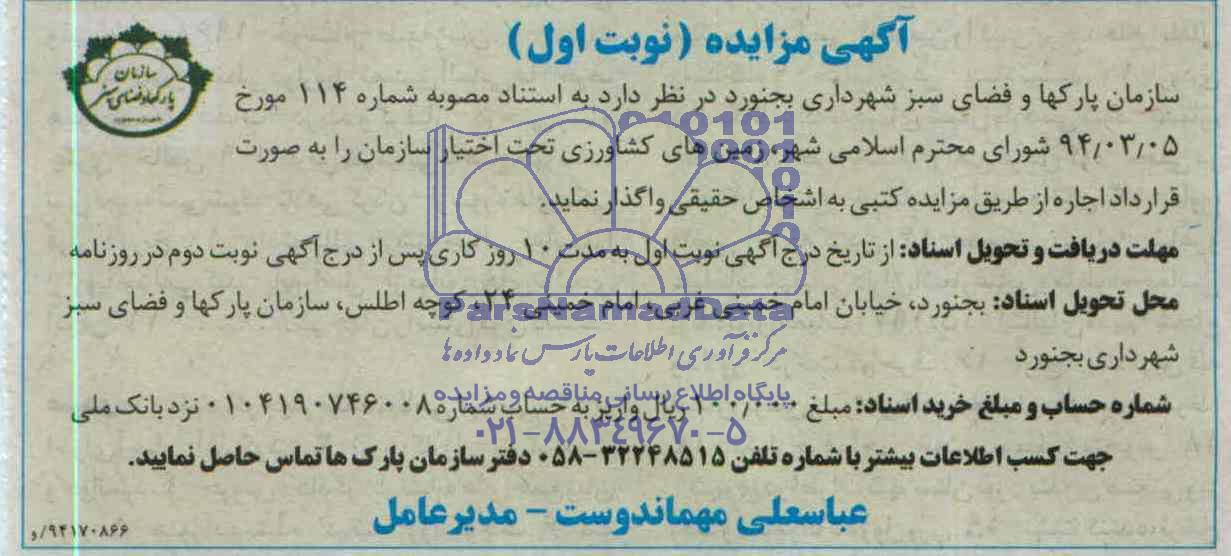 آگهی مزایده (نوبت اول)
سازمان
پارکها و فضای سبز
سازمان پارکها و فضای سبز شهرداری بجنورد در نظر دارد به استناد مصوبه شماره ۱۱۴ مورخ
۹۴/۰۳/۰۵ شورای محترم اسلامی شهر، زمین های کشاورزی تحت اختیار سازمان را به صورت
قرارداد اجاره از طریق مزایده کتبی به اشخاص حقیقی واگذار نماید.
مهلت دریافت و تحویل اسناد: از تاریخ درج آگهی نوبت اول به مدت ۱۰ روز کاری پس از درج آگهی نوبت دوم در روزنامه
محل تحویل اسناد: بجنورد، خیابان امام خمینی غربی، امام خمینی ۲۴، کوچه اطلس، سازمان پارکها و فضای سبز
شهرداری بجنورد
شماره حساب و مبلغ خرید اسناد: مبلغ ۱۰۰/۰۰۰ ریال واریز به حساب شماره ۰۱۰۴۱۹۰۷۴۶۰۰۸ نزد بانک ملی
جهت کسب اطلاعات بیشتر با شماره تلفن ۳۲۲۴۸۵۱۵-۰۵۸ دفتر سازمان پارک ها تماس حاصل نمایید.
عباسعلی مهماندوست - مدیرعامل
۹۴۱۷۰۸۶۶/و
ParsNamadData
مرکز فرآوری اطلاعات پارس نماد داده ها
پایگاه اطلاع رسانی مناقصه و مزایده
۰۲۱-۸۸۳۴۹۶۷۰-۵